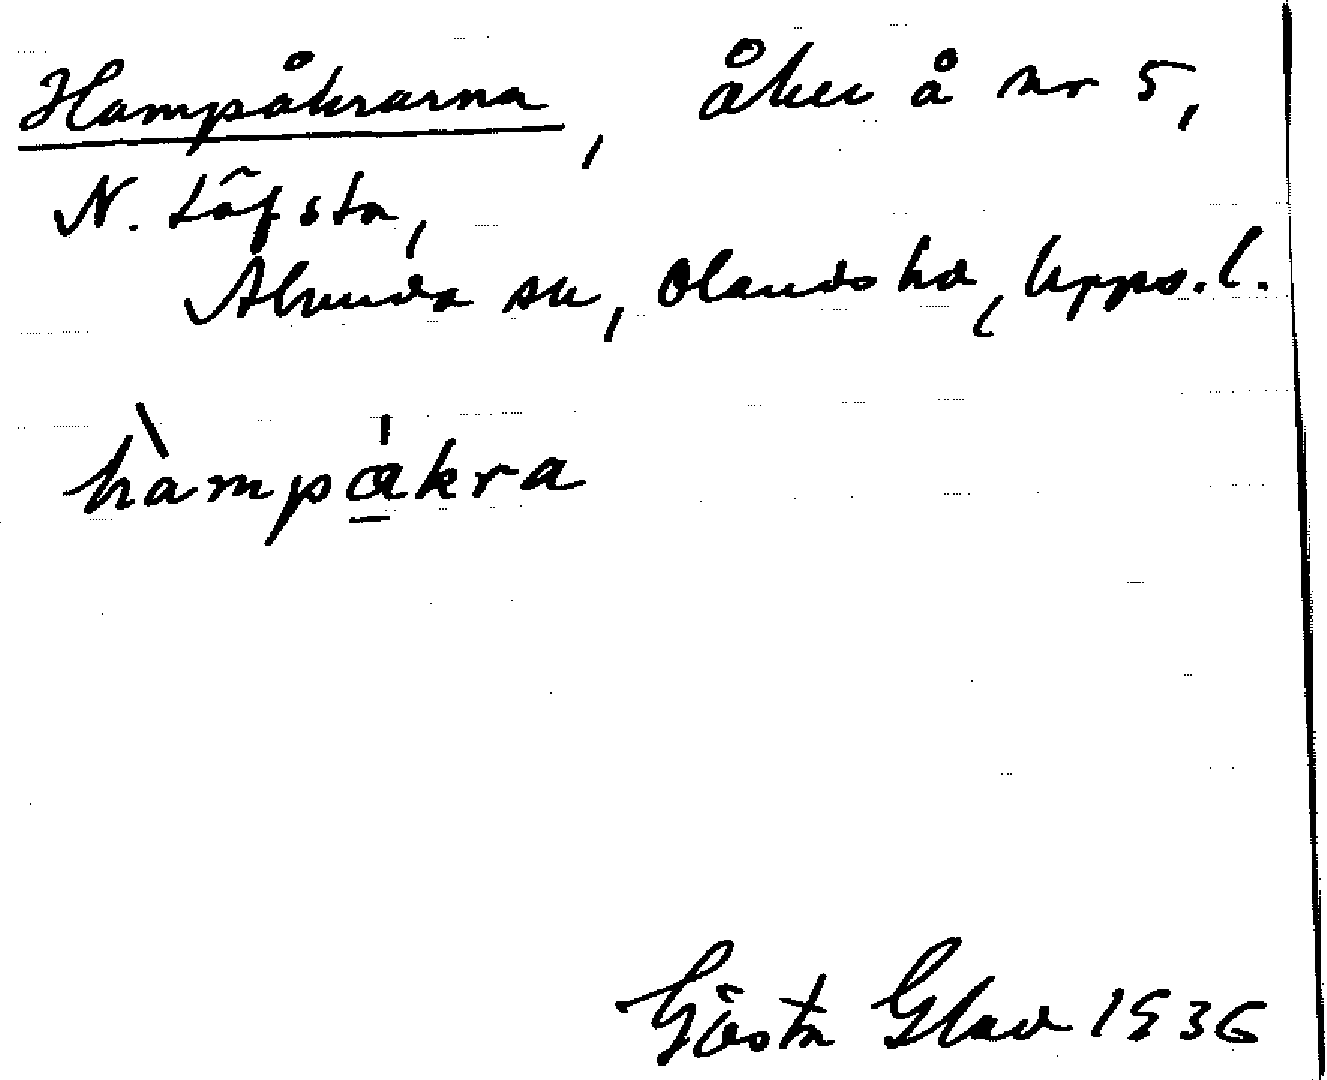 Hampåkrarna, åker å nr 5,
N. Löfsta,
Alunda sn, Olands hd, Upps. l.
hàmpákra
Gösta Glad 1936